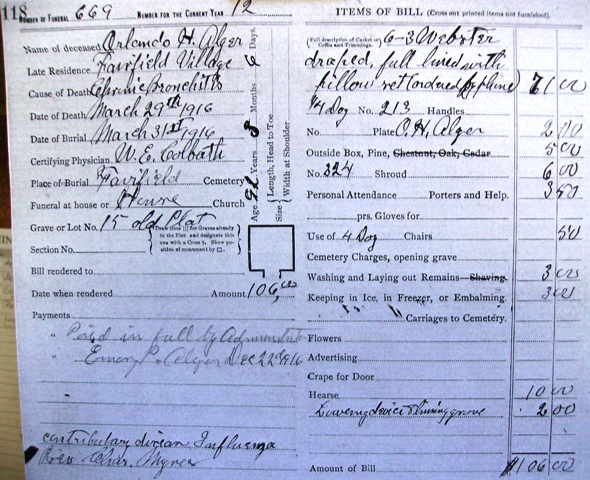 118
NUMBER OF FUNERAL 669 NUMBER FOR THE CURRENT YEAR 12
Name of deceased Orlando H. Alger
Late Residence Fairfield Village
Cause of Death Chronic Bronchitis
Date of Death March 29th 1916
Date of Burial March 31st 1916
Certifying Physician W. E.
Place of Burial Fairfield Cemetery
Funeral at house or House Church
Grave or Lot No. 15 old Plat
(Draw lines ||| for Graves already in the Plot and designate this one with a Cross †. Show position of monument by □.)
Section No.
Bill rendered to
Date when rendered Amount 106,00
Payments
" Paid in full by
" Emery P. Alger Dec 22 1916
contributary Influenza
Rev Chas.
Age Years 8 Months 6 Days.
Size { Length, Head to Toe
Width at Shoulder
ITEMS OF BILL (Cross out printed items not furnished).
(Full description of Casket or Coffin and Trimmings. 6-3 Webster
draped, full lined with
pillow set (ordered by phone) 71 00
Doz No. 213 Handles
No. Plate O. H. Alger 2 00
Outside Box, Pine, Chestnut, Oak, Cedar 5 00
No. 324 Shroud 6 00
Personal Attendance Porters and Help. 3 50
prs. Gloves for
Use of 4 Doz Chairs 50
Cemetery Charges, opening grave
Washing and Laying out Remains Shaving. 3 00
Keeping in Ice, in Freezer, or Embalming. 3 00
Carriages to Cemetery.
Flowers
Advertising
Crape for Door
Hearse 10 00
Lowering device & lining grave 2 00
Amount of Bill $106 00